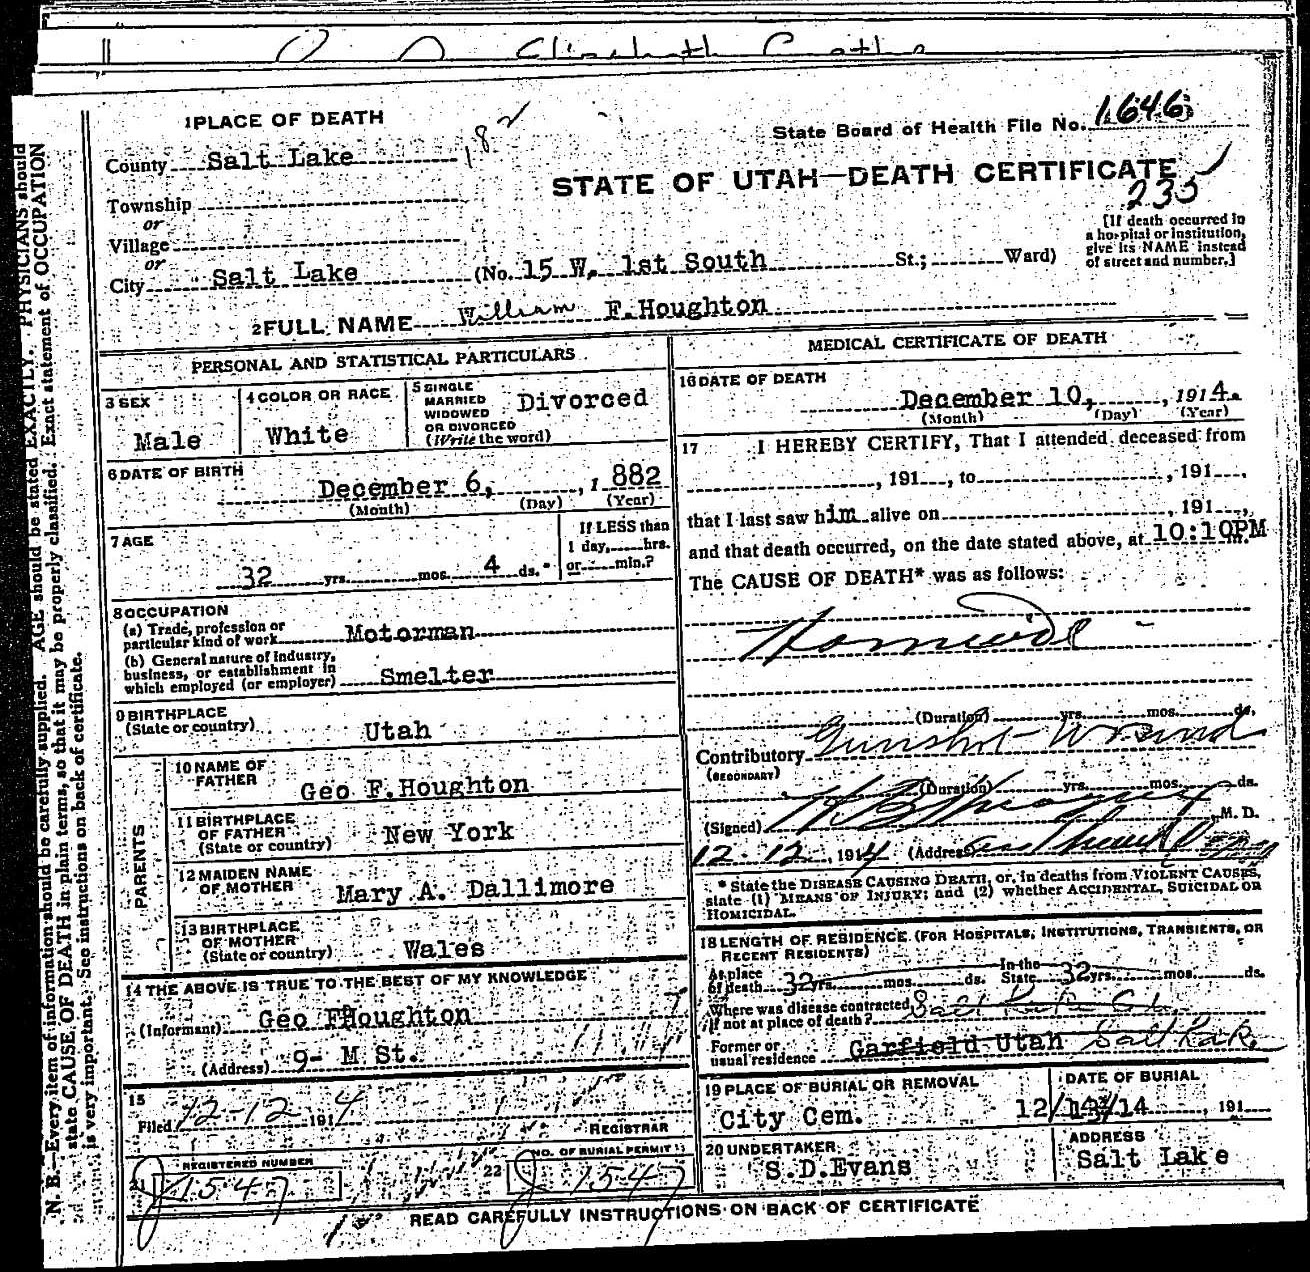 Elizabeth
1 PLACE OF DEATH
182
State Board of Health File No. 1646
County Salt Lake
STATE OF UTAH—DEATH CERTIFICATE
235
Township
or
Village
or
City Salt Lake (No. 15 W. 1st South St.; Ward)
[If death occurred in
a hospital or institution,
give its NAME instead
of street and number.]
2 FULL NAME William F. Houghton
PERSONAL AND STATISTICAL PARTICULARS
3 SEX
Male
4 COLOR OR RACE
White
5 SINGLE
MARRIED
WIDOWED
OR DIVORCED
(Write the word)
Divorced
6 DATE OF BIRTH
December 6, , 1 882
(Month) (Day) (Year)
7 AGE
32 yrs. mos. 4 ds.
If LESS than
1 day, hrs.
or min.?
8 OCCUPATION
(a) Trade, profession or
particular kind of work Motorman
(b) General nature of industry,
business, or establishment in
which employed (or employer) Smelter
9 BIRTHPLACE
(State or country) Utah
PARENTS
10 NAME OF
FATHER Geo F. Houghton
11 BIRTHPLACE
OF FATHER
(State or country) New York
12 MAIDEN NAME
OF MOTHER Mary A. Dallimore
13 BIRTHPLACE
OF MOTHER
(State or country) Wales
14 THE ABOVE IS TRUE TO THE BEST OF MY KNOWLEDGE
(Informant) Geo F Houghton
(Address) 9- M St.
15
Filed 12-12 1914
REGISTRAR
REGISTERED NUMBER
21 1547
NO. OF BURIAL PERMIT
22 1547
MEDICAL CERTIFICATE OF DEATH
16 DATE OF DEATH
December 10, , 1914.
(Month) (Day) (Year)
17 I HEREBY CERTIFY, That I attended deceased from
, 191 , to , 191 ,
that I last saw him alive on , 191 ,
and that death occurred, on the date stated above, at 10:10PM
The CAUSE OF DEATH* was as follows:
Homicide
(Duration) yrs. mos. ds.
Contributory Gunshot Wound
(SECONDARY)
(Duration) yrs. mos. ds.
(Signed) M. D.
12-12, 1914 (Address)
* State the DISEASE CAUSING DEATH, or, in deaths from VIOLENT CAUSES,
state (1) MEANS OF INJURY; and (2) whether ACCIDENTAL, SUICIDAL OR
HOMICIDAL.
18 LENGTH OF RESIDENCE (FOR HOSPITALS, INSTITUTIONS, TRANSIENTS, OR
RECENT RESIDENTS)
At place
of death 32 yrs. mos. ds. In the State 32 yrs. mos. ds.
Where was disease contracted
If not at place of death? Salt Lake
Former or
usual residence Garfield Utah Salt Lake
19 PLACE OF BURIAL OR REMOVAL
City Cem.
DATE OF BURIAL
12/ /14 , 191
20 UNDERTAKER
S.D. Evans
ADDRESS
Salt Lake
READ CAREFULLY INSTRUCTIONS ON BACK OF CERTIFICATE
N. B.—Every item of information should be carefully supplied. AGE should be stated EXACTLY. PHYSICIANS should
state CAUSE OF DEATH in plain terms, so that it may be properly classified. Exact statement of OCCUPATION
is very important. See instructions on back of certificate.